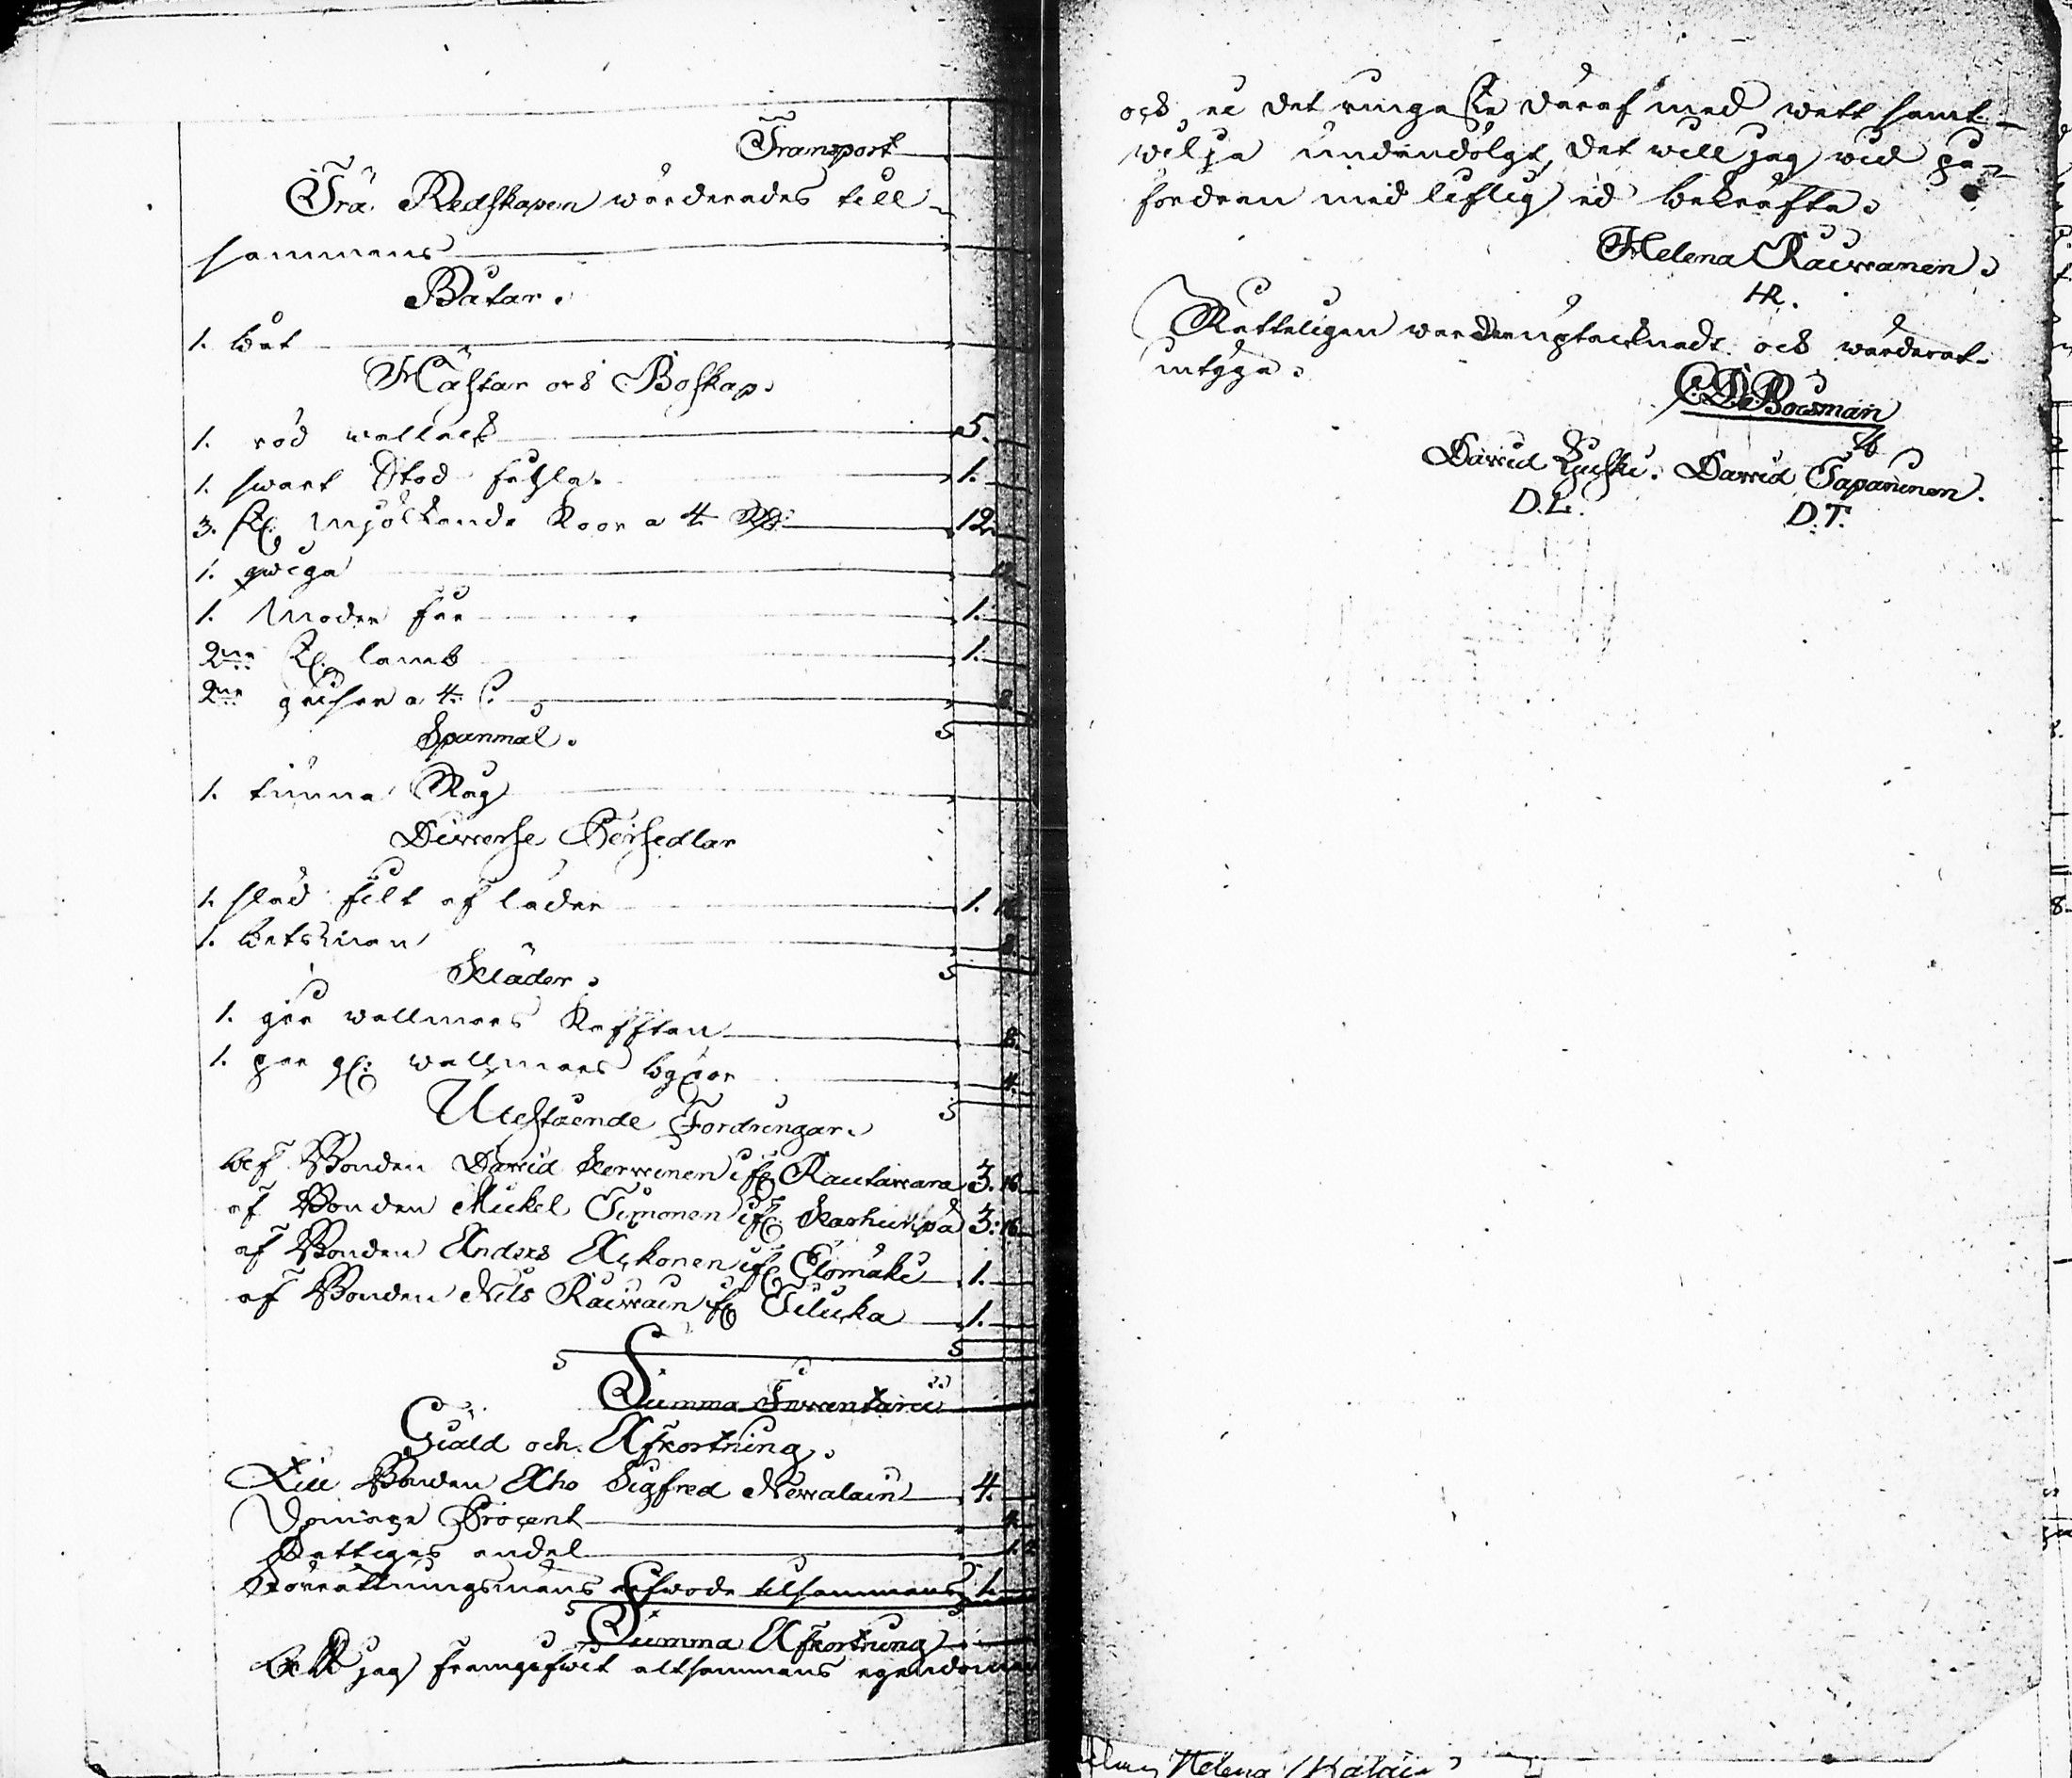 Transport
Trä Redskapen wärderades till-
sammans
Båtar.
1. båt
Hästar och Boskap.
1. röd wallack 5.
1. swart Stod fohla 1.
3. st. Mjölkande Koor a 4 Rd. 12.
1. qwiga
1. Moder får 1.
2ne st. lamb 1.
2ne grisar a 4 s. 8.
Spanmål.
1. tunna Råg
Diwerse Persedlar
1. släd filt af läder 1. 16.
1. betsman 8.
Kläder.
1. grå wallmars Kafftan 8.
1. par gl: wallmars byxor 4.
Utestående Fordringar.
Af Bonden Dawid Kerwinen ifr. Rautawara 3. 16.
af Bonden Mickel Timonen ifr. 3: 16.
af Bonden Anders ifr. Elomäki 1.
af Bonden Nils Räiwäin fr. Tiluka 1.
Summa Inwentarii
Giäld och Afkortning.
Till Bonden Aho Sigfred Newalain 4.
Procent
Fattigas andel 1.
Förrättningsmäns arfwode tilsammans 1.
Summa Afkortning
Att jag framgifwit altsammans egendomen
och ei det ringaste däraf med wett samt
wilja undandölgt, det will jag wid på-
fordran med liflig ed bekräfta.
Helena Räiwänen.
HR.
Rätteligen wara upteknadt och wärderat
intyga.
Bosman
Dawid Dawid Tapaninen.
D.L. D.T.
Helena